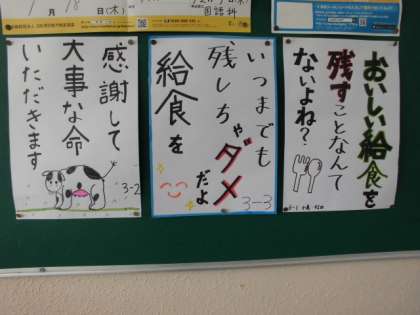 月18日(木)
国語科
おいしい給食を
残すことなんて
ないよね?
いつまでも
残しちゃダメ
だよ
給食を
3-3
感謝して
大事な命
いただきます
3-2